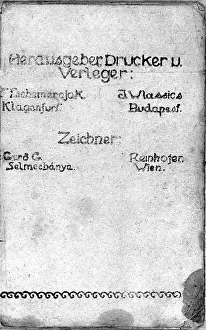 Herausgeber Drucker u.
Verleger:
J. Wlassics
Klagenfurt. Budapest.
Zeichner:
Gerő G. Reinhofer
Selmecbánya. Wien.